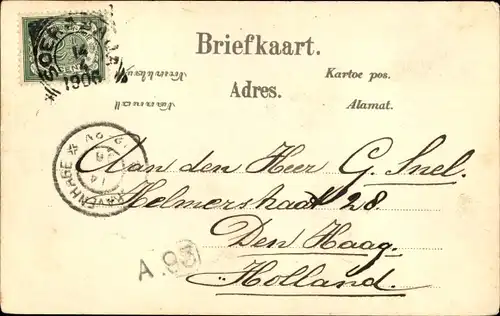 SOERABAJA
14
1906
Briefkaart.
Kartoe pos.
Adres.
Alamat.
'S GRAVENHAGE
Aan den Heer G. Snel.
Helmerstraat 28.
Den Haag.
Holland.
A.93